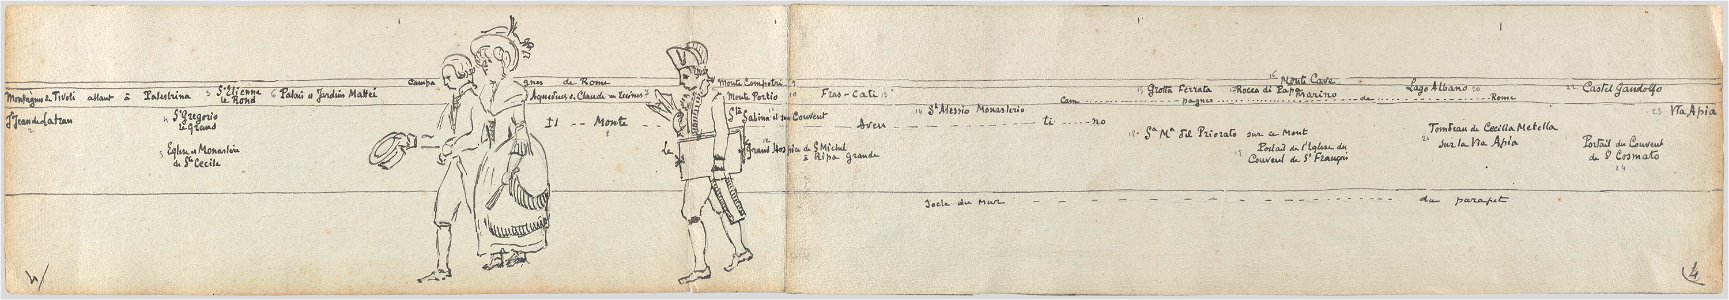 Campagnes de Rome
Montagnes de Tivoli allant à Palestrina
3 St Etienne
le Rond
6 Palais et Jardins Mattei
Aqueducs de Claude en ruines 7
Monte Compotri 9
Monte Portio 10
Fras-Cati 13
15 Grotta Ferrata
16 Monte Cave
Rocca di Papa
Marino
Lago Albano 20
22 Castel Gandolfo
St Jean de Latran
2
4 St Gregorio
le Grand
Il -- Monte
8
Ste Sabina et son Couvent
Aven ti no
14 St Alessio Monasterio
Cam pagnes de Rome
23 Via Apia
5 Eglise et Monastère
de Ste Cecile
le
12
Grand Hospice de St Michel
à Ripa Grande
18 Sa Ma del Priorato sur ce Mont
19 Portail de l'Eglise du
Couvent de St François
Tombeau de Cecilla Metella
21 sur la Via Apia
Portail du Couvent
de S Cosmato
24
Socle du mur du parapet
4
4